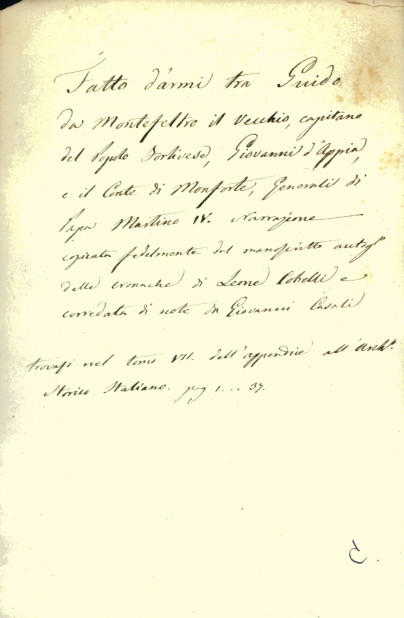 Fatto d'armi tra Guido
da Montefeltro il Vecchio, capitano
del Popolo Forlivese, Giovanni d'Appia,
e il Conte di Monforte, Generali di
Papa Martino IV. Narrazione
copiata fedelmente dal manoscritto autogº
delle cronache di Leone Cobelli e
corredata di note da Giovanni Casali
trovasi nel tomo VII. dell'appendice all'Archº.
Storico Italiano. pag 1... 37.
C.